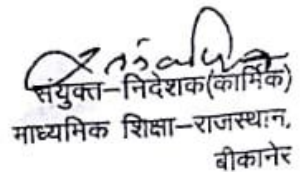 संयुक्त–निदेशक(कार्मिक)
माध्यमिक शिक्षा–राजस्थान,
बीकानेर